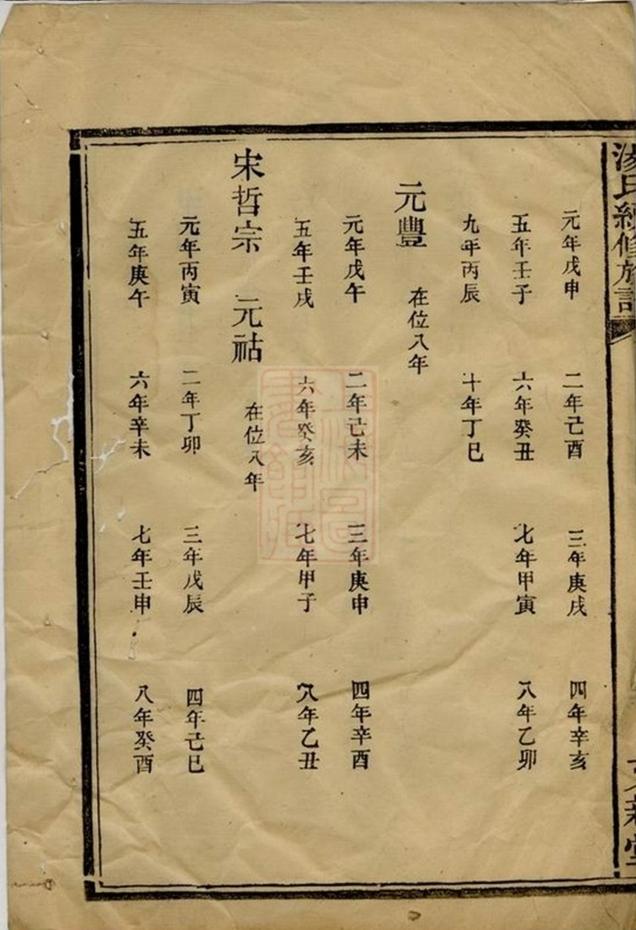 湯氏續修族譜
元年戊申 二年己酉 三年庚戌 四年辛亥
五年壬子 六年癸丑 七年甲寅 八年乙卯
九年丙辰 十年丁巳
元豐 在位八年
元年戊午 二年己未 三年庚申 四年辛酉
五年壬戌 六年癸亥 七年甲子 八年乙丑
宋哲宗 元祐 在位八年
元年丙寅 二年丁卯 三年戊辰 四年己巳
五年庚午 六年辛未 七年壬申 八年癸酉